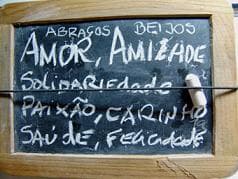 ABRAÇOS BEIJOS
AMOR, AMIZADE
SOLIDARIEDADE
PAIXÃO, CARINHO
SAÚDE, FELICIDADE